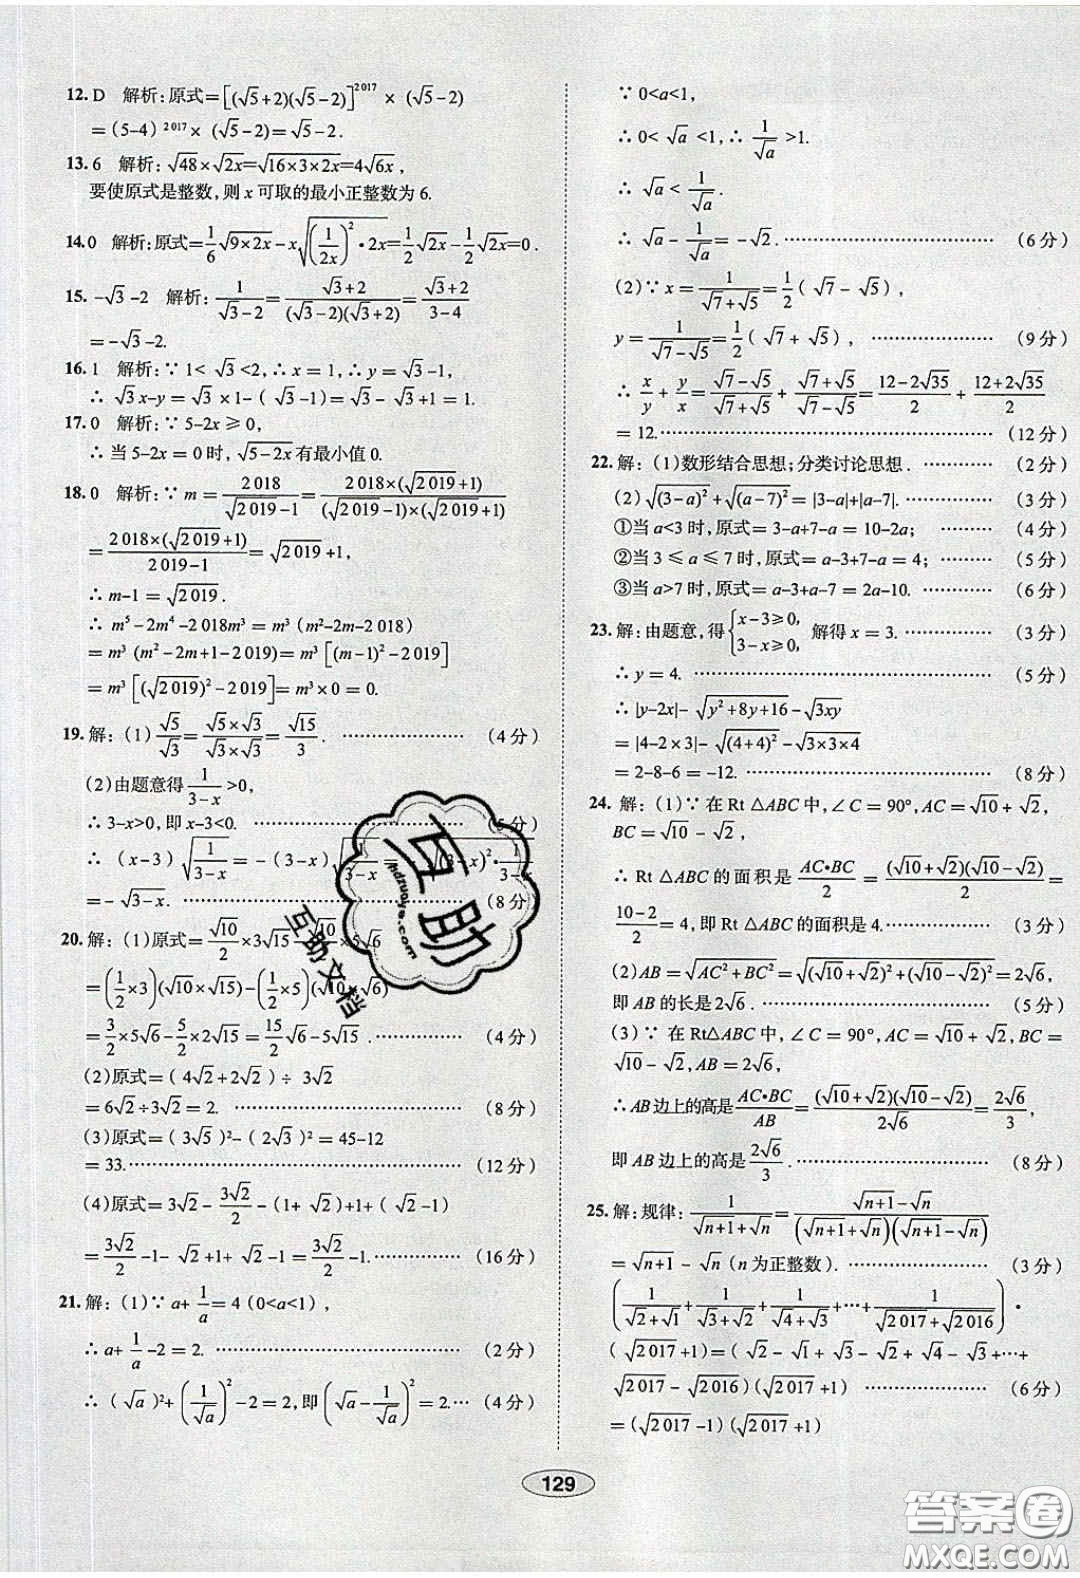 12. D 解析:原式=[(√5+2)(√5-2)]^2017 × (√5-2)
= (5-4)^2017 × (√5-2)=√5-2.
13. 6 解析:√48×√2x=√(16×3×2x)=4√6x,
要使原式是整数,则 x 可取的最小正整数为 6.
14. 0 解析:原式=1/6√(9×2x)-x√((1/2x)²·2x)=1/2√2x-1/2√2x=0.
15. -√3-2 解析:1/(√3-2)=(√3+2)/((√3-2)(√3+2))=(√3+2)/(3-4)
=-√3-2.
16. 1 解析:∵ 1<√3<2,∴ x=1,∴ y=√3-1,
∴ √3x-y=√3×1-(√3-1)=√3-√3+1=1.
17. 0 解析:∵ 5-2x≥0,
∴ 当 5-2x=0 时,√(5-2x)有最小值 0.
18. 0 解析:∵ m=2 018/(√2 019-1)=2 018×(√2 019+1)/((√2 019-1)×(√2 019+1))
=2 018×(√2 019+1)/(2 019-1)=√2 019+1,
∴ m-1=√2 019.
∴ m⁵-2m⁴-2 018m³=m³(m²-2m-2 018)
=m³(m²-2m+1-2 019)=m³[(m-1)²-2 019]
=m³[(√2 019)²-2 019]=m³×0=0.
19. 解:(1)√5/√3=(√5×√3)/(√3×√3)=√15/3. …………………(4分)
(2)由题意得1/(3-x)>0,
∴ 3-x>0,即 x-3<0. …………(5分)
∴ (x-3)√(1/(3-x))=-(3-x)√(1/(3-x))=-√((3-x)²·1/(3-x))
=-√(3-x). …………(8分)
20. 解:(1)原式=√10/2×3√15-√10/2×5√6
=(1/2×3)(√10×√15)-(1/2×5)(√10×√6)
=3/2×5√6-5/2×2√15=15/2√6-5√15. …………(4分)
(2)原式=(4√2+2√2)÷3√2
=6√2÷3√2=2. …………………(8分)
(3)原式=(3√5)²-(2√3)²=45-12
=33. …………………(12分)
(4)原式=3√2-3√2/2-(1+√2)+1+(√2-1)
=3√2/2-1-√2+1+√2-1=3√2/2-1. …………(16分)
21. 解:(1)∵ a+1/a=4(0<a<1),
∴ a+1/a-2=2. …………………(2分)
∴ (√a)²+(1/√a)²-2=2,即(√a-1/√a)²=2. …(4分)
∵ 0<a<1,
∴ 0<√a<1,∴ 1/√a>1.
∴ √a<1/√a.
∴ √a-1/√a=-√2. …………………(6分)
(2)∵ x=1/(√7+√5)=1/2(√7-√5),
y=1/(√7-√5)=1/2(√7+√5), …………(9分)
∴ x/y+y/x=(√7-√5)/(√7+√5)+(√7+√5)/(√7-√5)=(12-2√35)/2+(12+2√35)/2
=12. …………………(12分)
22. 解:(1)数形结合思想;分类讨论思想. …………(2分)
(2)√(3-a)²+√(a-7)²=|3-a|+|a-7|. …………(3分)
①当 a<3 时,原式=3-a+7-a=10-2a; …………(4分)
②当 3≤a≤7 时,原式=a-3+7-a=4; …………(5分)
③当 a>7 时,原式=a-3+a-7=2a-10. …………(6分)
23. 解:由题意,得{x-3≥0, 3-x≥0, 解得 x=3. …………(3分)
∴ y=4. …………………(5分)
∴ |y-2x|-√(y²+8y+16)-√3xy
=|4-2×3|-√(4+4)²-√(3×3×4)
=2-8-6=-12. …………………(8分)
24. 解:(1)∵ 在 Rt △ABC 中,∠C=90°,AC=√10+√2,
BC=√10-√2,
∴ Rt △ABC 的面积是AC·BC/2=(√10+√2)(√10-√2)/2=
(10-2)/2=4,即 Rt △ABC 的面积是 4. …………(3分)
(2)AB=√(AC²+BC²)=√((√10+√2)²+(√10-√2)²)=2√6,
即 AB 的长是 2√6. …………………(5分)
(3)∵ 在 Rt△ABC 中,∠C=90°,AC=√10+√2,BC=
√10-√2,AB=2√6,
∴AB 边上的高是AC·BC/AB=(√10+√2)(√10-√2)/2√6=2√6/3,
即 AB 边上的高是2√6/3. …………………(8分)
25. 解:规律:1/(√(n+1)+√n)=(√(n+1)-√n)/((√(n+1)+√n)(√(n+1)-√n))
=√(n+1)-√n(n 为正整数). …………(3分)
(1/(√2+√1)+1/(√3+√2)+1/(√4+√3)+…+1/(√2 017+√2 016))·
(√2 017+1)=(√2-√1+√3-√2+√4-√3+…+
√2 017-√2 016)(√2 017+1) …………(6分)
=(√2 017-1)(√2 017+1)
129
互助
hdzuoye.com
互助文档
答案圈
MXQE.COM